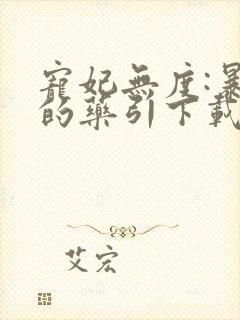 寵妃無度:暴
的藥引下載
艾宏